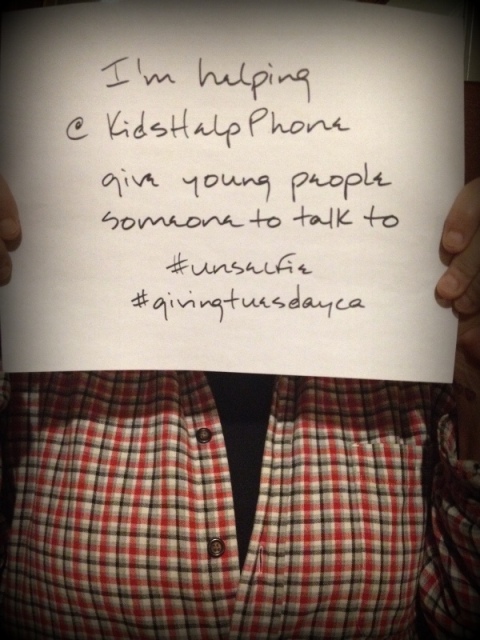 I'm helping
@ KidsHelpPhone
give young people
someone to talk to
#unselfie
#givingtuesdayca